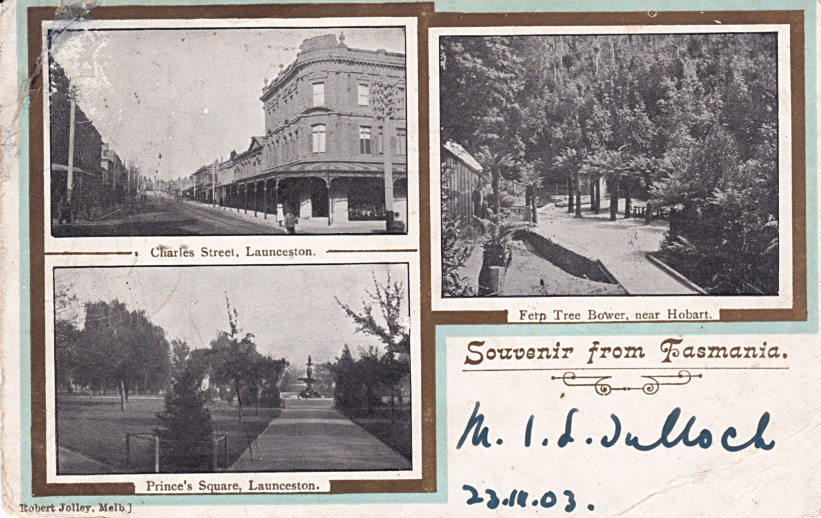 Charles Street, Launceston.
Fern Tree Bower, near Hobart.
Souvenir from Tasmania.
M. I. L. Tulloch
Prince's Square, Launceston.
Robert Jolley, Melb.]